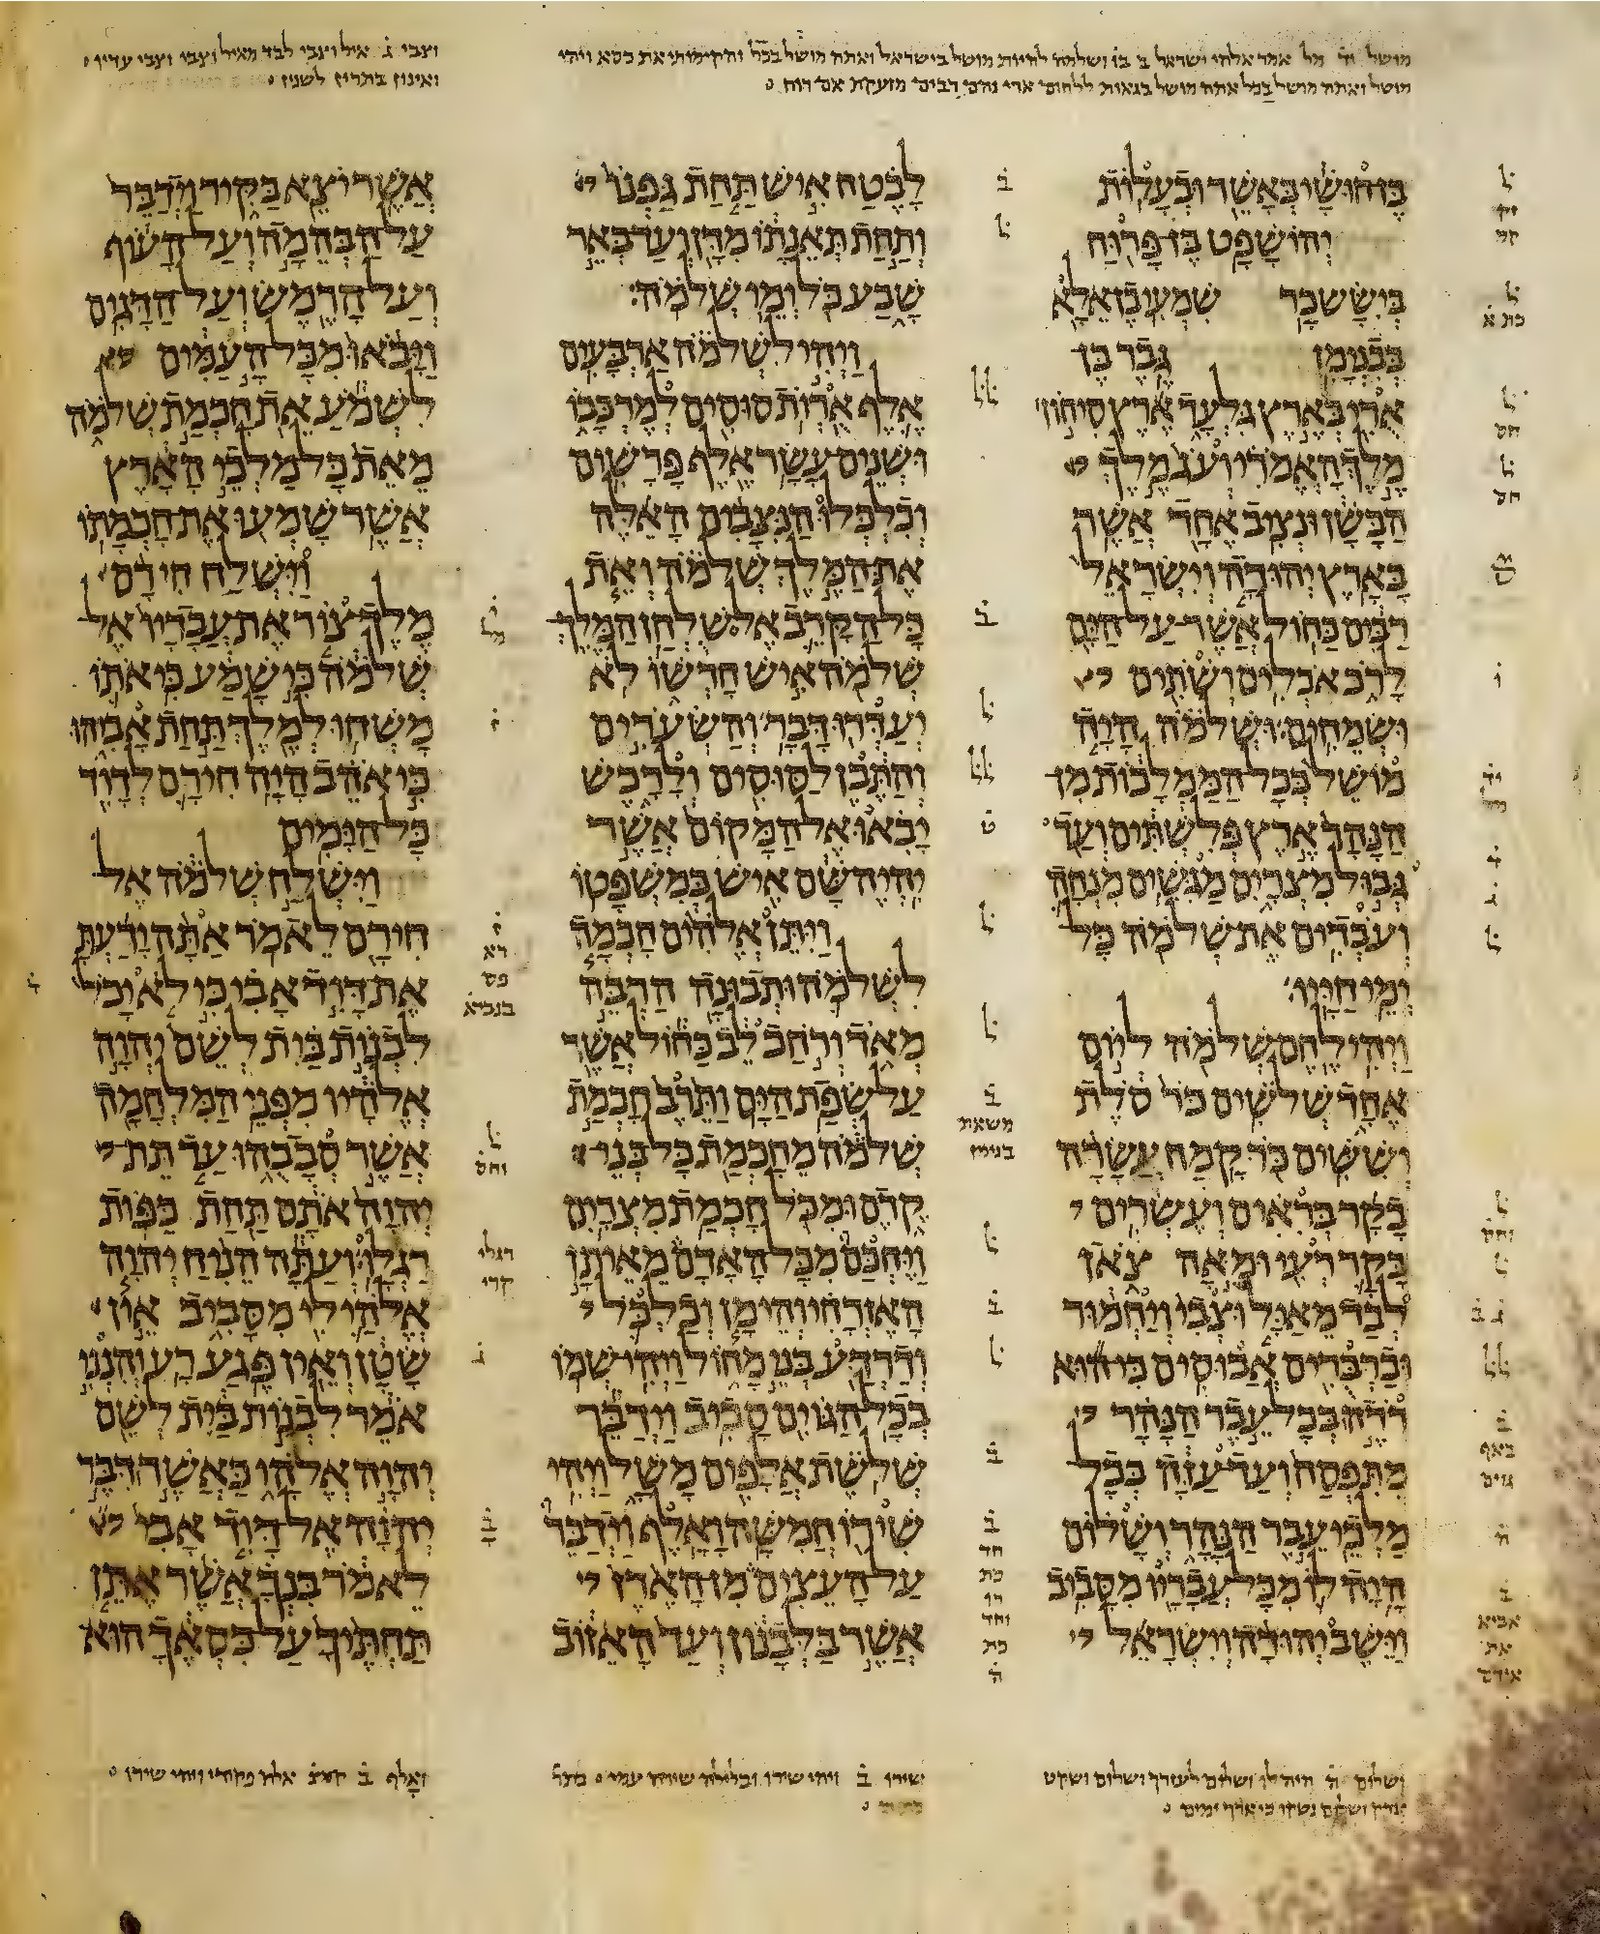 מושל יד מל אמר אלהי ישראל ב בו ושלמה להיות מושל בישראל ואתה מושל בכל והקימותי את כסא ויהי
מושל ואתה מושל בכל אתה מושל בגאות ללחום ארי נהם רבים מזעקת אם רוח
וצבי ג איל וצבי לבד מאיל וצבי וצבי עדיו
בן חושי באשר ובעלות
יהושפט בן פרוח
ביששכר שמעי בן אלא
בבנימן גבר בן
ארי בארץ גלעד ארץ סיחון
מלך האמרי ועג מלך
הבשן ונציב אחד אשר
בארץ יהודה וישראל
רבים כחול אשר על הים
לרב אכלים ושתים
ושמחים ושלמה היה
מושל בכל הממלכות מן
הנהר ארץ פלשתים ועד
גבול מצרים מגשים מנחה
ועבדים את שלמה כל
ימי חייו
ויהי לחם שלמה ליום
אחד שלשים כר סלת
וששים כר קמח עשרה
בקר בראים ועשרים
בקר רעי ומאה צאן
לבד מאיל וצבי ויחמור
וברברים אבוסים כי הוא
רדה בכל עבר הנהר
מתפסח ועד עזה בכל
מלכי עבר הנהר ושלום
היה לו מכל עבריו מסביב
וישב יהודה וישראל
לבטח איש תחת גפנו
ותחת תאנתו מדן ועד באר
שבע כל ימי שלמה
ויהי לשלמה ארבעים
אלף ארות סוסים למרכבו
ושנים עשר אלף פרשים
וכלכלו הנצבים האלה
את המלך שלמה ואת
כל הקרב אל שלחן המלך
שלמה איש חדשו לא
יעדרו דבר והשערים
והתבן לסוסים ולרכש
יבאו אל המקום אשר
יהיה שם איש כמשפטו
ויתן אלהים חכמה
לשלמה ותבונה הרבה
מאד ורחב לב כחול אשר
על שפת הים ותרב חכמת
שלמה מחכמת כל בני
קדם ומכל חכמת מצרים
ויחכם מכל האדם מאיתן
האזרחי והימן וכלכל
ודרדע בני מחול ויהי שמו
בכל הגוים סביב וידבר
שלשת אלפים משל ויהי
שירו חמשה ואלף וידבר
על העצים מן הארז
אשר בלבנון ועד האזוב
אשר יצא בקיר וידבר
על הבהמה ועל העוף
ועל הרמש ועל הדגים
ויבאו מכל העמים
לשמע את חכמת שלמה
מאת כל מלכי הארץ
אשר שמעו את חכמתו
וישלח חירם
מלך צור את עבדיו אל
שלמה כי שמע כי אתו
משחו למלך תחת אביהו
כי אהב היה חירם לדוד
כל הימים
וישלח שלמה אל
חירם לאמר אתה ידעת
את דוד אבי כי לא יכל
לבנות בית לשם יהוה
אלהיו מפני המלחמה
אשר סבבהו עד תת
יהוה אתם תחת כפות
רגלו ועתה הניח יהוה
אלהי לי מסביב אין
שטן ואין פגע רע והנני
אמר לבנות בית לשם
יהוה אלהי כאשר דבר
יהוה אל דוד אבי
לאמר בנך אשר אתן
תחתיך על כסאך הוא
ושלום ה היה לו ושלום לעורך ושלום ושקט
שירו ב ויהי שירו ובלילה שירה עמי
ואלף ב אלה פקודי ויהי שירו